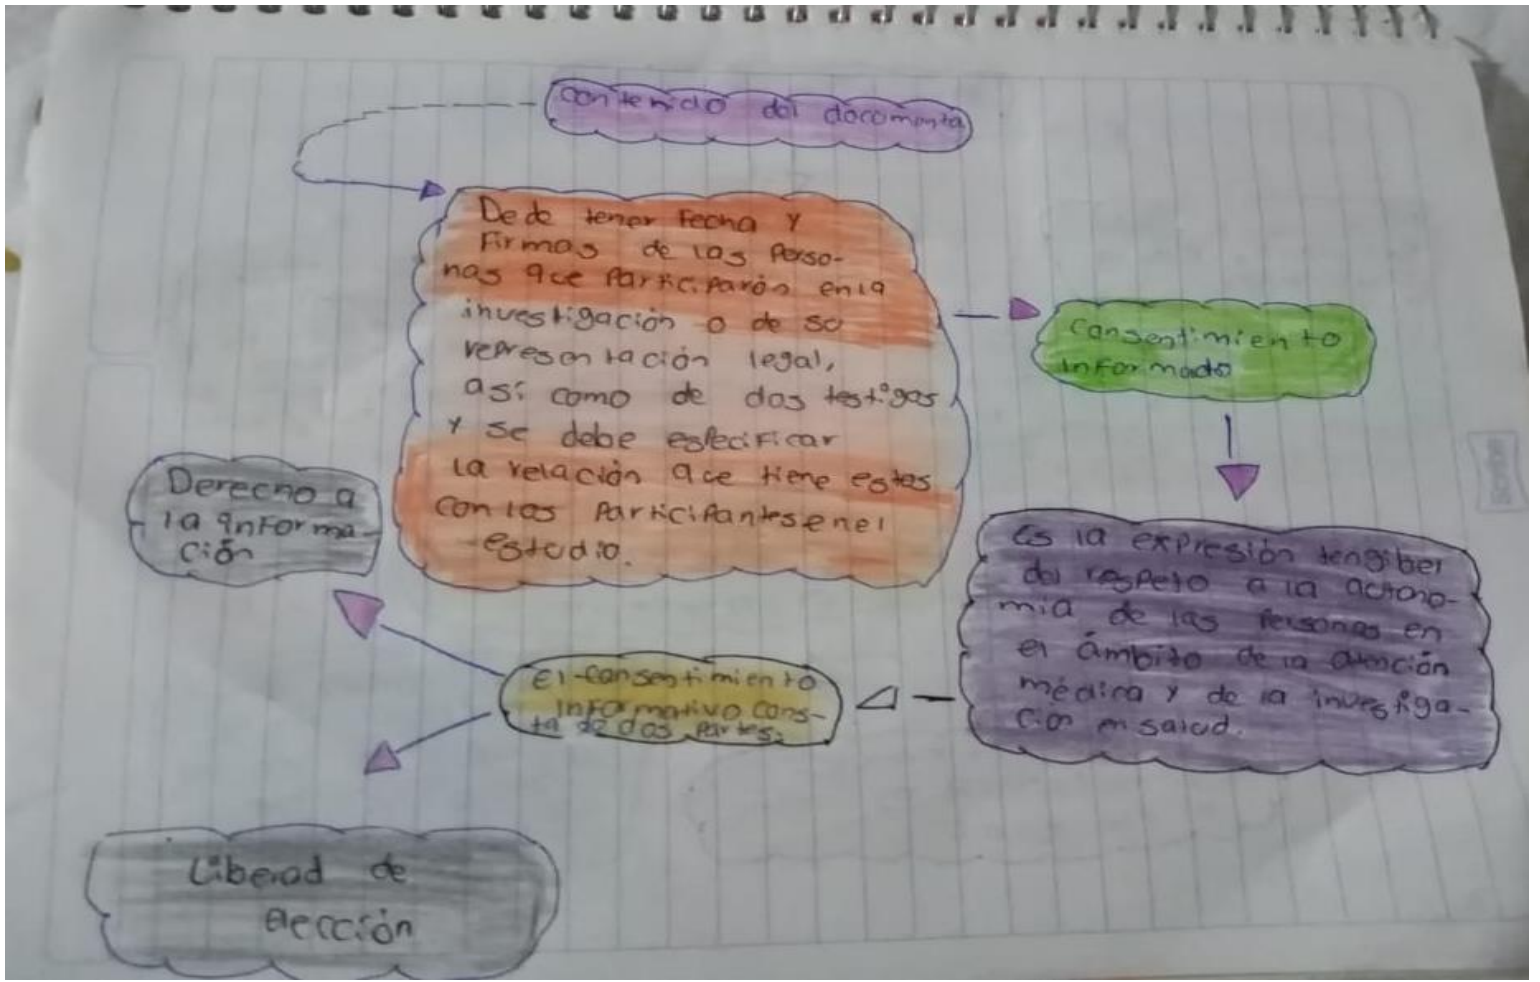 contenido del documento
Dede tener fecha y
firmas de las perso-
nas que participarón en la
investigación o de su
representación legal,
así como de dos testigos
y se debe especificar
la relación que tiene estos
con los participantes en el
estudio.
consentimiento
informado
Es la expresión tengiber
del respeto a la autono-
mia de las personas en
el ámbito de la atención
médica y de la investiga-
ción en salud.
El consentimiento
informativo cons-
ta de dos partes.
Derecho a
la informa-
ción
Liberad de
elección